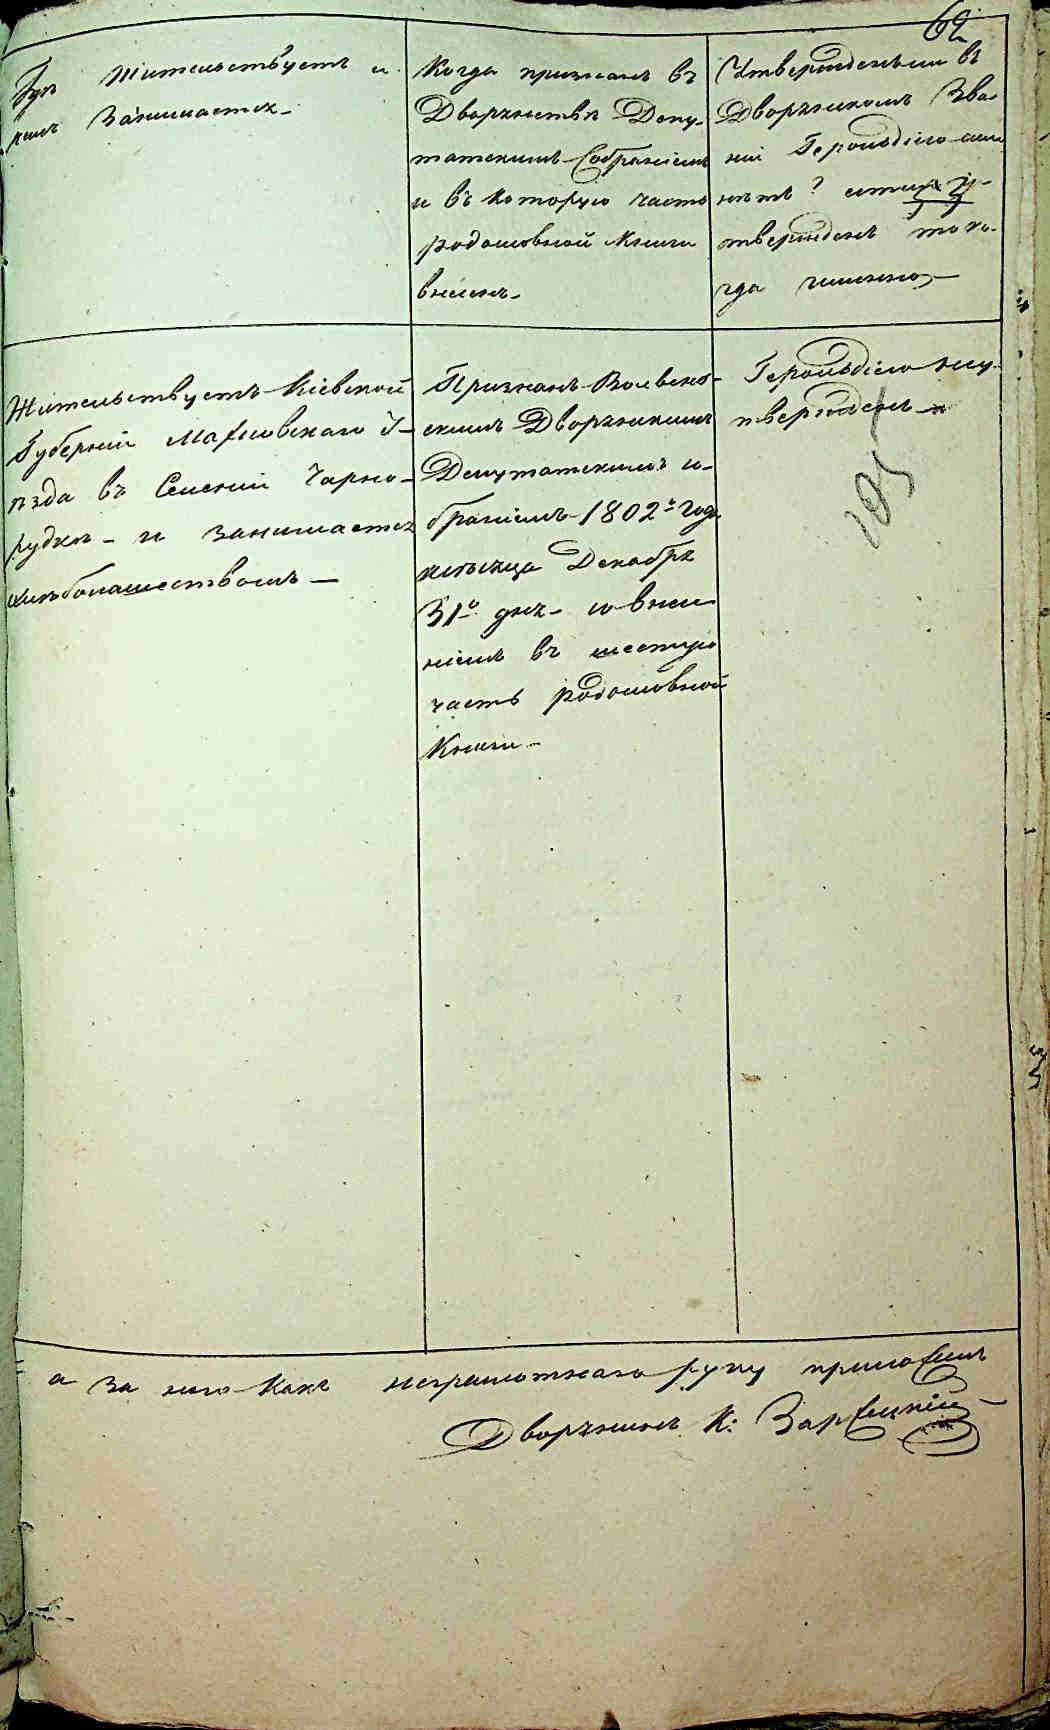 62
Гдѣ жительствуетъ и
чемъ занимается.
Когда признанъ въ
Дворянствѣ Депу-
татскимъ Собраніемъ
и въ которую часть
родословной Книги
внесенъ.
Утвержденъ ли въ
Дворянскомъ Зва-
ніи Герольдіею или
нѣтъ? если у-
твержденъ то ко-
гда именно,
Жительствуетъ Кіевской
Губерніи Махновскаго У-
ѣзда въ Селеніи Чарно-
рудкѣ и занимается
хлѣбопашествомъ
Признанъ Волынс-
скимъ Дворянскимъ
Депутатскимъ Со-
браніемъ 1802го года
мѣсяца Декабря
31го дня со внесе-
ніемъ въ шестую
часть родословной
Книги
Герольдіею неу-
твержденъ
105
а за него какъ неграмотнаго руку приложилъ
Дворянинъ К: Зарѣцкій